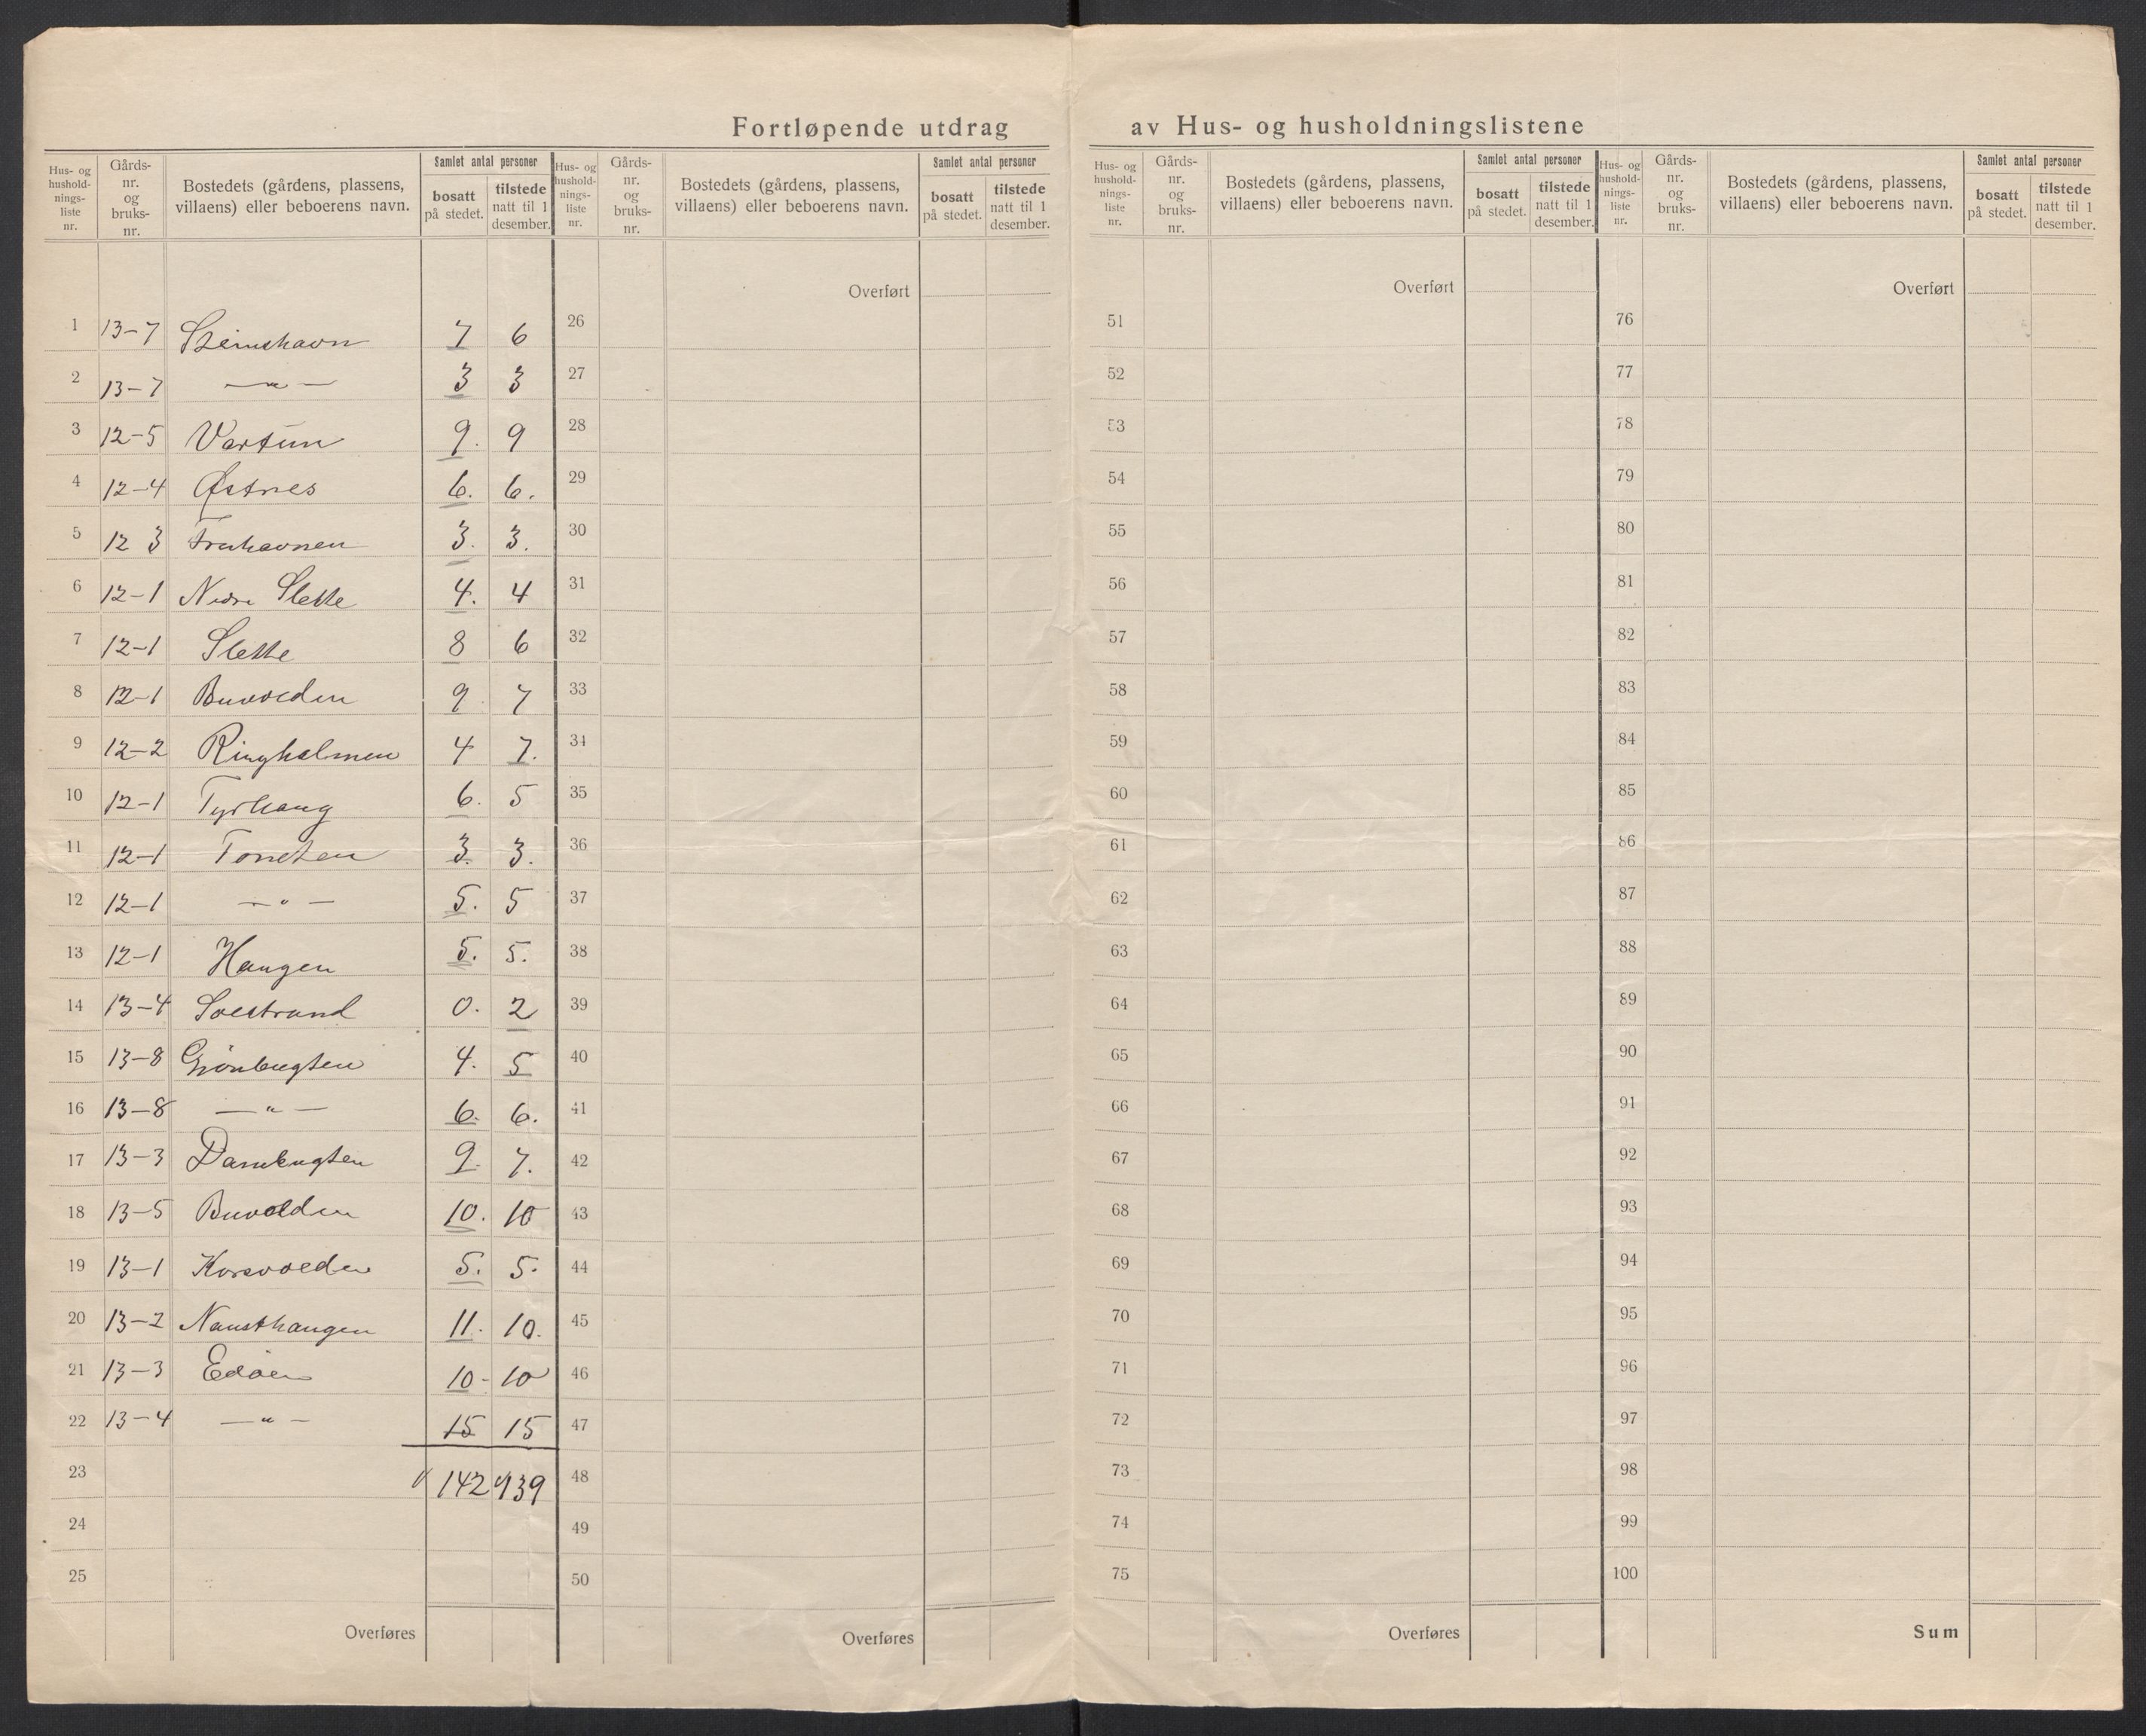 Fortløpende utdrag av Hus- og husholdningslistene
Hus- og hushold- nings- liste nr. | Gårds- nr. og bruks- nr. | Bostedets (gårdens, plassens, villaens) eller beboerens navn. | Samlet antal personer | bosatt på stedet. | tilstede natt til 1 desember.
Hus- og hushold- nings- liste nr. | Gårds- nr. og bruks- nr. | Bostedets (gårdens, plassens, villaens) eller beboerens navn. | Samlet antal personer | bosatt på stedet. | tilstede natt til 1 desember.
Hus- og hushold- nings- liste nr. | Gårds- nr. og bruks- nr. | Bostedets (gårdens, plassens, villaens) eller beboerens navn. | Samlet antal personer | bosatt på stedet. | tilstede natt til 1 desember.
Hus- og hushold- nings- liste nr. | Gårds- nr. og bruks- nr. | Bostedets (gårdens, plassens, villaens) eller beboerens navn. | Samlet antal personer | bosatt på stedet. | tilstede natt til 1 desember.
1 13-7 Steinshavn 7 6
2 13-7 — " — 3 3
3 12-5 Vartun 9. 9
4 12-4 Østnes 6. 6.
5 12 3 3. 3.
6 12-1 Nedre Slette 4. 4
7 12-1 Slette 8 6
8 12-1 Buvolden 9 7
9 12-2 Ringholmen 4 7.
10 12-1 Tyrhaug 6. 5
11 12-1 3. 3.
12 12-1 — " — 5. 5
13 12-1 Haugen 5. 5.
14 13-4 Solstrand 0. 2
15 13-8 Grönbugten 4. 5
16 13-8 — " — 6. 6.
17 13-3 Dambugten 9. 7.
18 13-5 Buvolden 10. 10
19 13-1 Korsvolden 5. 5.
20 13-2 Nausthaugen 11. 10.
21 13-3 Edöen 10- 10
22 13-4 — " — 15 15
23 142 139
24
25
Overføres
Overført
26
27
28
29
30
31
32
33
34
35
36
37
38
39
40
41
42
43
44
45
46
47
48
49
50
Overføres
Overført
51
52
53
54
55
56
57
58
59
60
61
62
63
64
65
66
67
68
69
70
71
72
73
74
75
Overføres
Overført
76
77
78
79
80
81
82
83
84
85
86
87
88
89
90
91
92
93
94
95
96
97
98
99
100
Sum